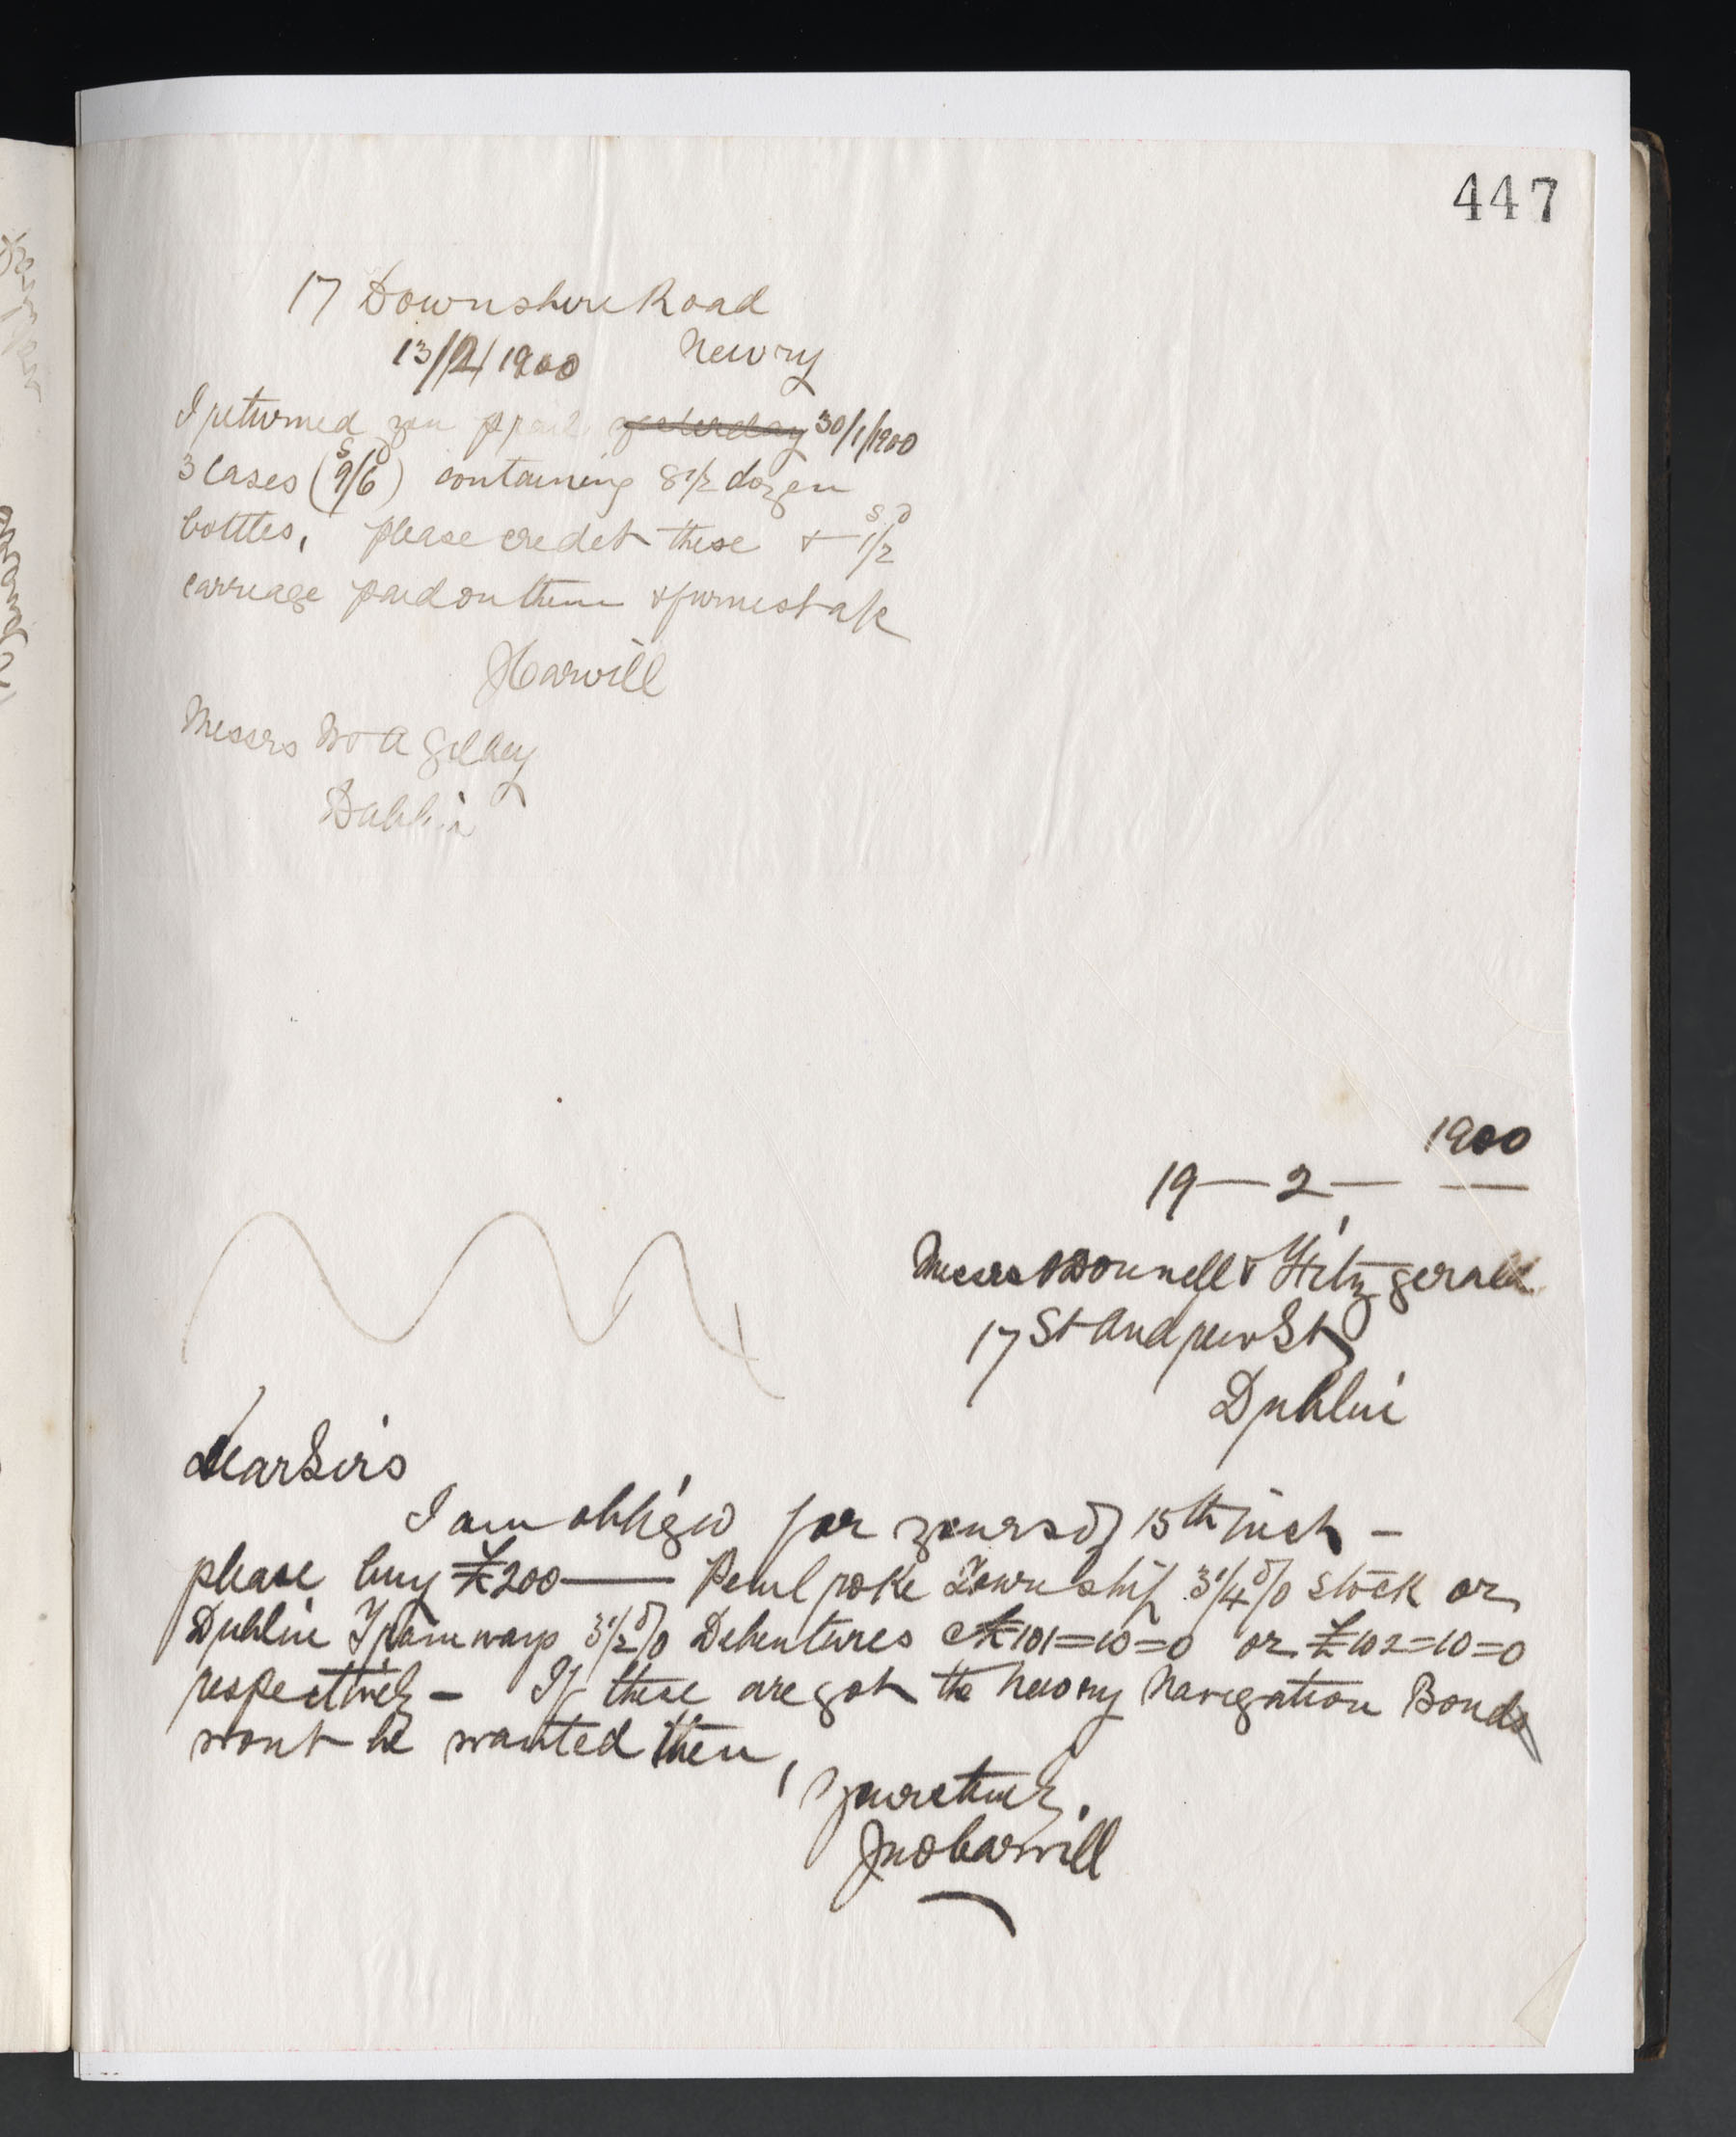 447
17 Downshire Road
13/2/1900 Newry
I returned you yesterday 30/1/1900
3 Cases (9/6) containing 8 1/2 dozen
S D
bottles, please credet these & 1/2
S D
carriage paid on them & furnish a/c
JCarvill
Messrs W & A Gilbey
Dublin
1900
19 — 2 —
Messrs ODonnell & Fitzgerald
17 St Andrew St
Dublin
Dear Sirs
I am obliged for yours of 15th inst –
please buy £200 — Pembroke Township 3 1/4 % Stock or
Dublin Tramways 3 1/2 % Debentures @ £101=10=0 or £102=10=0
respectively – If these are got the Newry Navigation Bonds
wont be wanted then,
Yours truly.
Jno Carvill